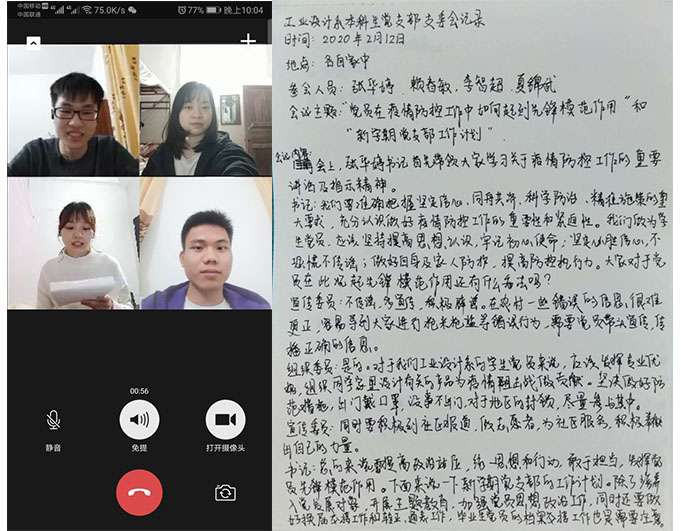 中国移动 HD 4G 4G 75.0K/s 77% 晚上10:04
中国联通
00:56
静音
免提
打开摄像头
工业设计系本科生党支部支委会记录
时间：2020年2月12日
地点：各自家中
参会人员：张华婷 赖春敏 李智超 夏锦斌
会议主题：“党员在疫情防控工作中如何起到先锋模范作用”和
“新学期党支部工作计划”
会议内容：
会上，张华婷书记首先带领大家学习关于疫情防控工作的重要
讲话及指示精神。
书记：我们要准确把握坚定信心、同舟共济、科学防治、精准施策的重
大要求，充分认识做好疫情防控工作的重要性和紧迫性。我们做为学
生党员，应该坚持提高思想认识，牢记初心使命，坚定必胜信心，不
恐慌不传谣，做好自身及家人防护，提高防控执行力。大家对于党
员在此次起先锋模范作用还有什么看法吗？
宣传委员：不信谣，不造谣，积极辟谣。在对付一些错误的信息，很难
更正，容易导致大家进行抢米抢盐等错误行为，需要党员带头宣传，传
播正确的信息。
组织委员：是的。对于我们工业设计系的学生党员来说，应该发挥专业优
势，组织同学在里设计有关的产品为疫情阻击战做贡献。坚决做好防
范措施，出门戴口罩，没事不出门，对于地区的封锁，尽量参与其中。
宣传委员：同时要积极到社区报道，做志愿者，为社区服务，积极奉献
出自己的力量。
书记：总的来说要提高政治站位，统一思想和行动，敢于担当，发挥党
员先锋模范作用。下面来说一下新学期党支部的工作计划。除了培养
入党发展对象，开展主题教育，加强党员思想政治工作，同时还要做
好